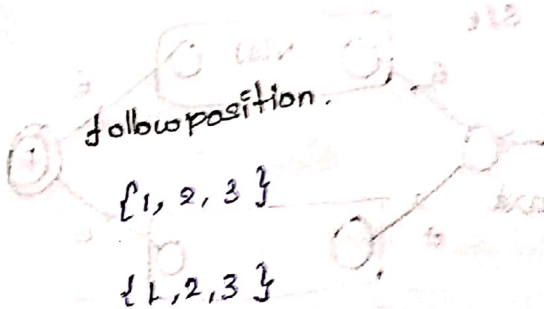 followposition.
{1, 2, 3}
{1, 2, 3}